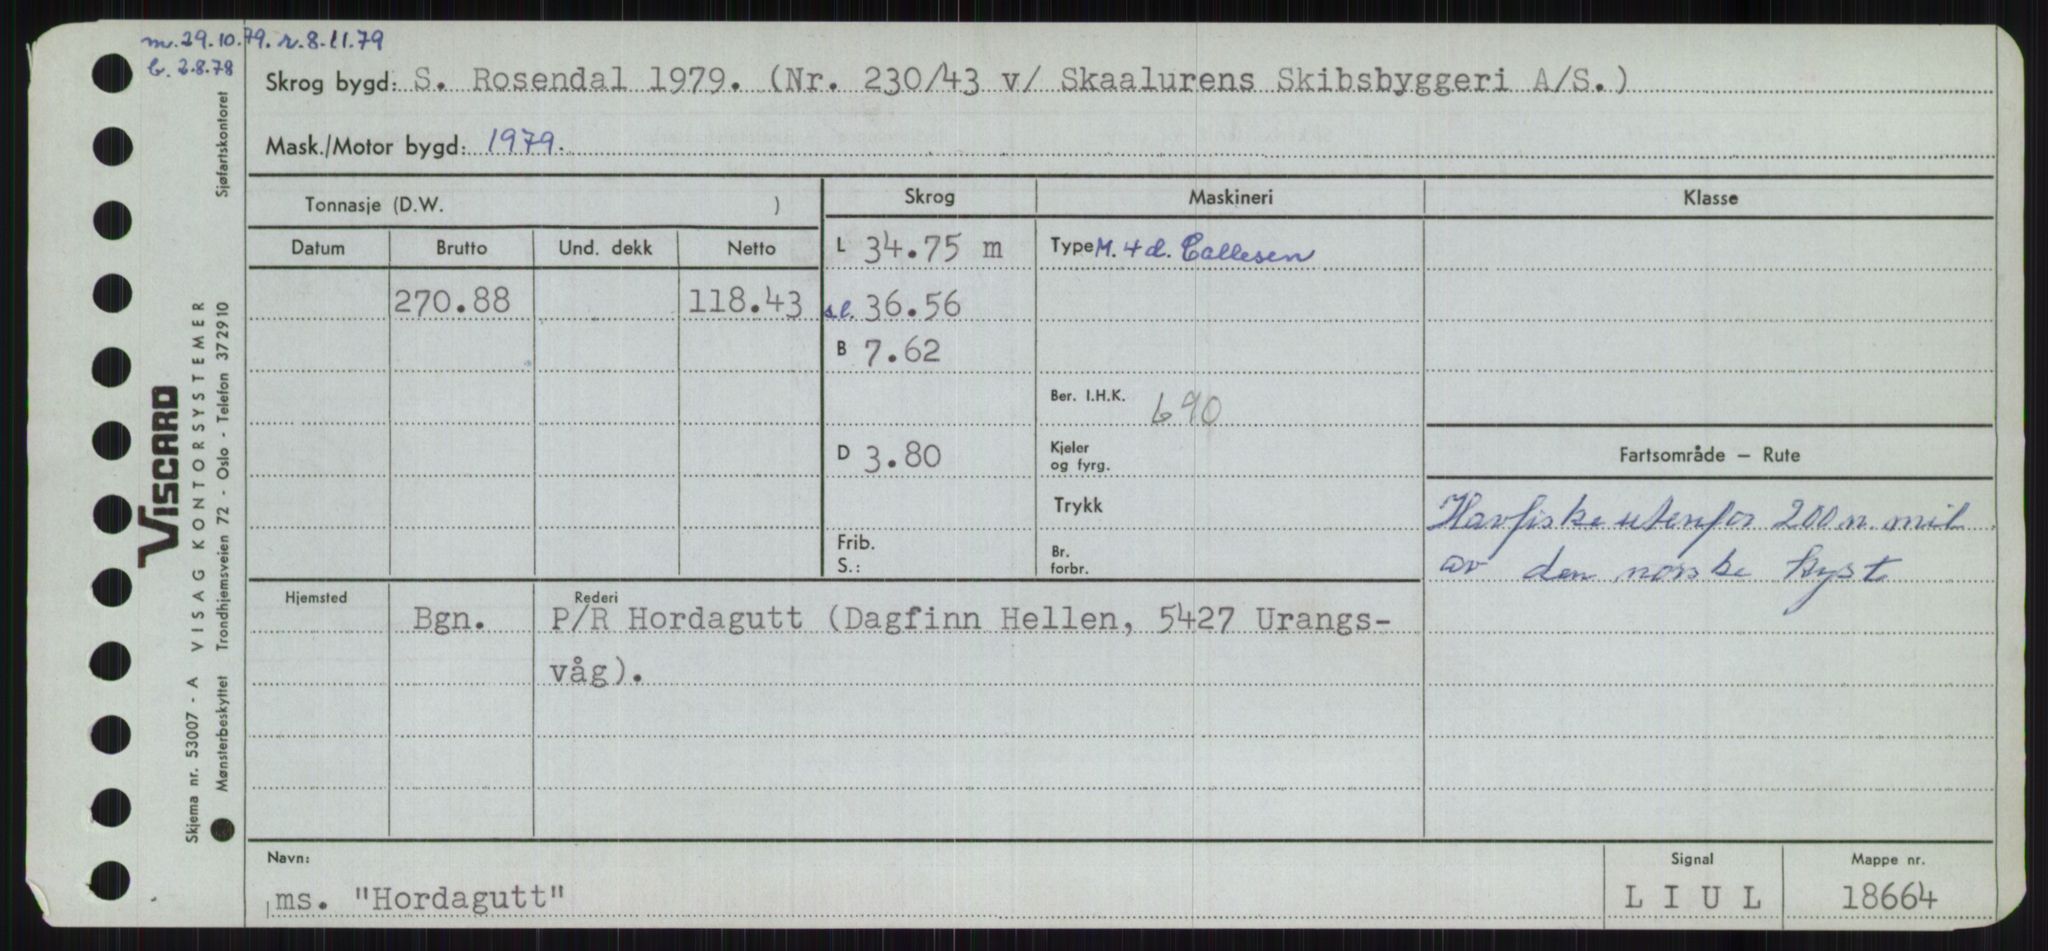 m. 29.10.79. r. 8.11.79
b. 2.8.78
Skrog bygd: S. Rosendal 1979. (Nr. 230/43 v/ Skaalurens Skibsbyggeri A/S.)
Mask./Motor bygd: 1979.
Tonnasje (D.W. )
Skrog
Maskineri
Klasse
Datum Brutto Und. dekk Netto
L 34.75 m
Type M. 4 d. Callesen
270.88 118.43
s.l. 36.56
B 7.62
Ber. I.H.K. 690
D 3.80
Kjeler
og fyrg.
Trykk
Frib.
S.:
Br.
forbr.
Fartsområde – Rute
Havfiske utenfor 200 n. mil
av den norske kyst
Hjemsted
Rederi
Bgn. P/R Hordagutt (Dagfinn Hellen, 5427 Urangs-
våg).
Navn:
ms. "Hordagutt"
Signal
L I U L
Mappe nr.
18664
Sjøfartskontoret
VISCARD
VISAG KONTORSYSTEMER
Trondhjemsveien 72 - Oslo - Telefon 372910
Skjema nr. 53007 - A
Mønsterbeskyttet